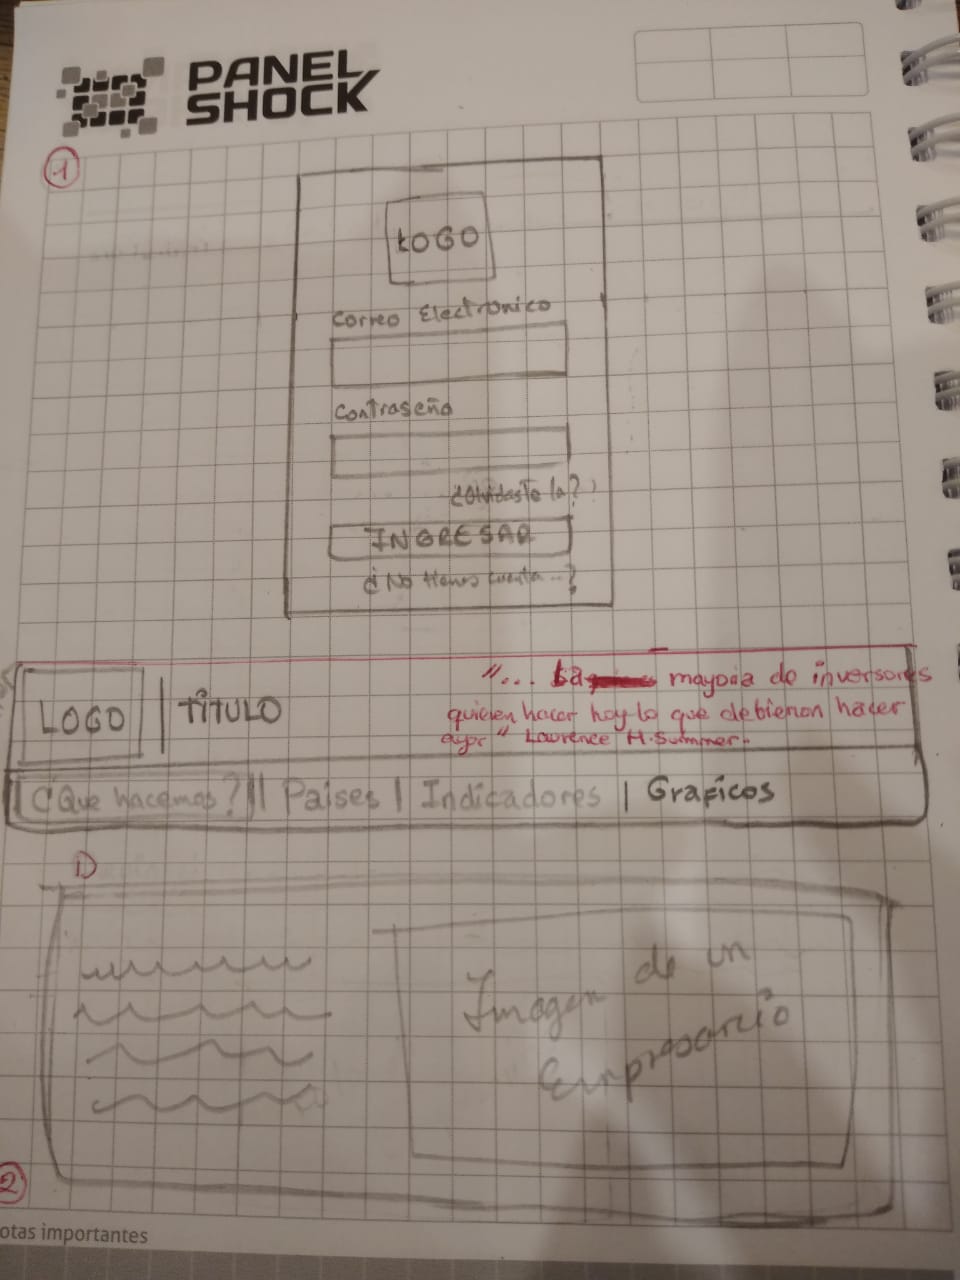 PANEL
SHOCK
1
LOGO
Correo Electronico
Contraseña
¿Olvidaste la?
INGRESAR
¿No tienes cuenta...?
LOGO | TÍTULO
"... La mayoria de inversores
quieren hacer hoy lo que debieron hacer
ayer" Lawrence H. Summer.
¿Que hacemos? || Paises | Indicadores | Graficos
D
Imagen de un
Empresario
2
otas importantes